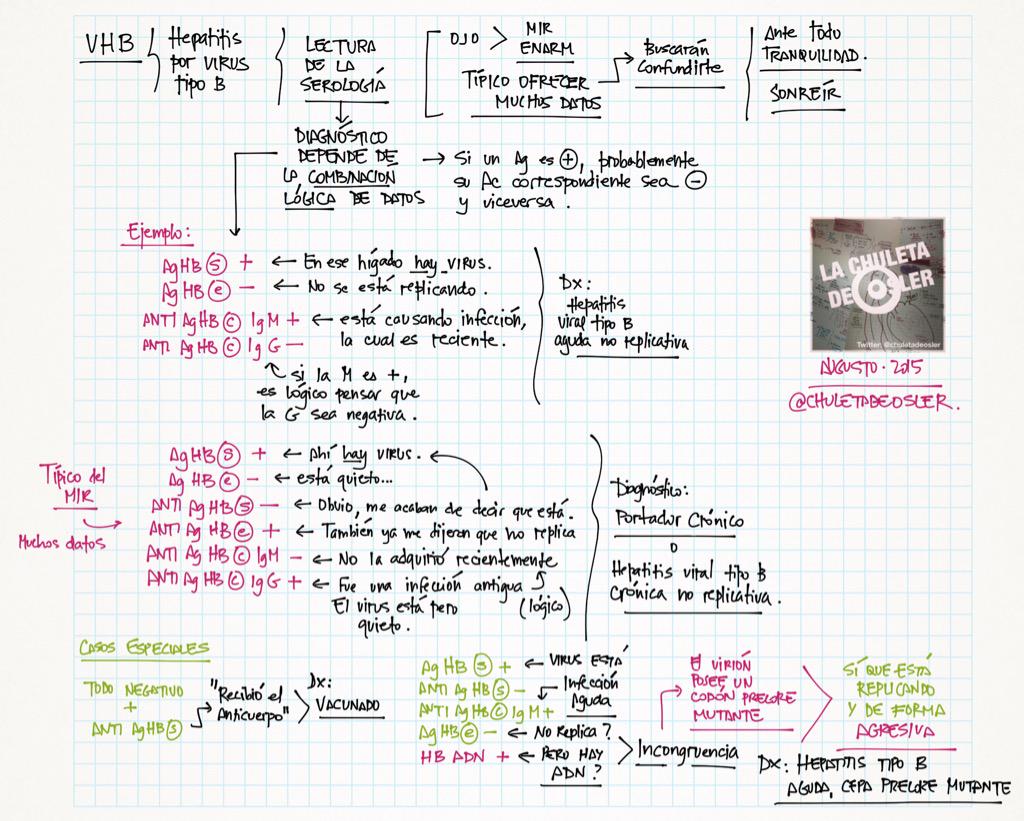 VHB
Hepatitis
por VIRUS
tipo B
LECTURA
DE LA
SEROLOGÍA
OJO > MIR
ENARM
TÍPICO OFRECER
MUCHOS DATOS
Buscarán
Confundirte
Ante todo
TRANQUILIDAD.
SONREÍR
DIAGNÓSTICO
DEPENDE DE
LA COMBINACIÓN
LÓGICA DE DATOS
→ Si un Ag es ⊕, probablemente
su Ac correspondiente sea ⊖
y viceversa.
Ejemplo:
AgHBⓢ + ← En ese hígado hay VIRUS.
AgHBⓔ - ← No se está replicando.
ANTI AgHBⓒ IgM + ← está causando infección,
la cual es reciente.
ANTI AgHBⓒ IgG -
si la M es +,
es lógico pensar que
la G sea negativa.
Dx:
Hepatitis
viral tipo B
aguda no replicativa
LA CHULETA
DE OSLER
Twitter: @chuletadeosler
AUGUSTO·2015
@CHULETADEOSLER.
Típico del
MIR
Muchos datos
AgHBⓢ + ← Ahí hay VIRUS.
Ag HBⓔ - ← está quieto...
ANTI Ag HBⓢ - ← Obvio, me acaban de decir que está.
ANTI Ag HBⓔ + ← También ya me dijeron que no replica
ANTI Ag HBⓒ IgM - ← No la adquirió recientemente
ANTI Ag HBⓒ IgG + ← Fue una infección antigua
El virus está pero
quieto.
(lógico)
Diagnóstico:
Portador Crónico
o
Hepatitis viral tipo B
Crónica no replicativa.
CASOS ESPECIALES
TODO NEGATIVO
+
ANTI AgHBⓢ
"Recibió el
Anticuerpo"
Dx:
VACUNADO
AgHBⓢ + ← VIRUS ESTÁ
ANTI AgHBⓢ -
ANTI AgHBⓒ IgM +
Infección
Aguda
AgHBⓔ - ← No Replica?
HB ADN + ← PERO HAY
ADN?
Incongruencia
El VIRIÓN
POSEE UN
CODÓN PRECORE
MUTANTE
SÍ QUE ESTÁ
REPLICANDO
Y DE FORMA
AGRESIVA
Dx: HEPATITIS TIPO B
AGUDA, CEPA PRECORE MUTANTE